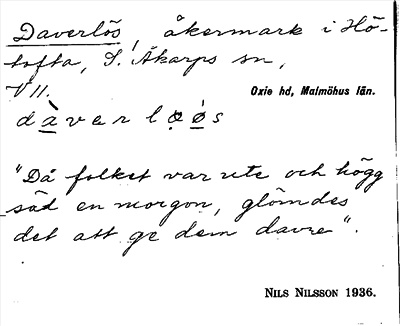 Daverlös, åkermark i Hö-
tofta, S. Åkarps sn,
VII. Oxie hd, Malmöhus län.
dàverløǿs
"Då folket var ute och högg
säd en morgon, glömdes
det att ge dem davre".
NILS NILSSON 1936.